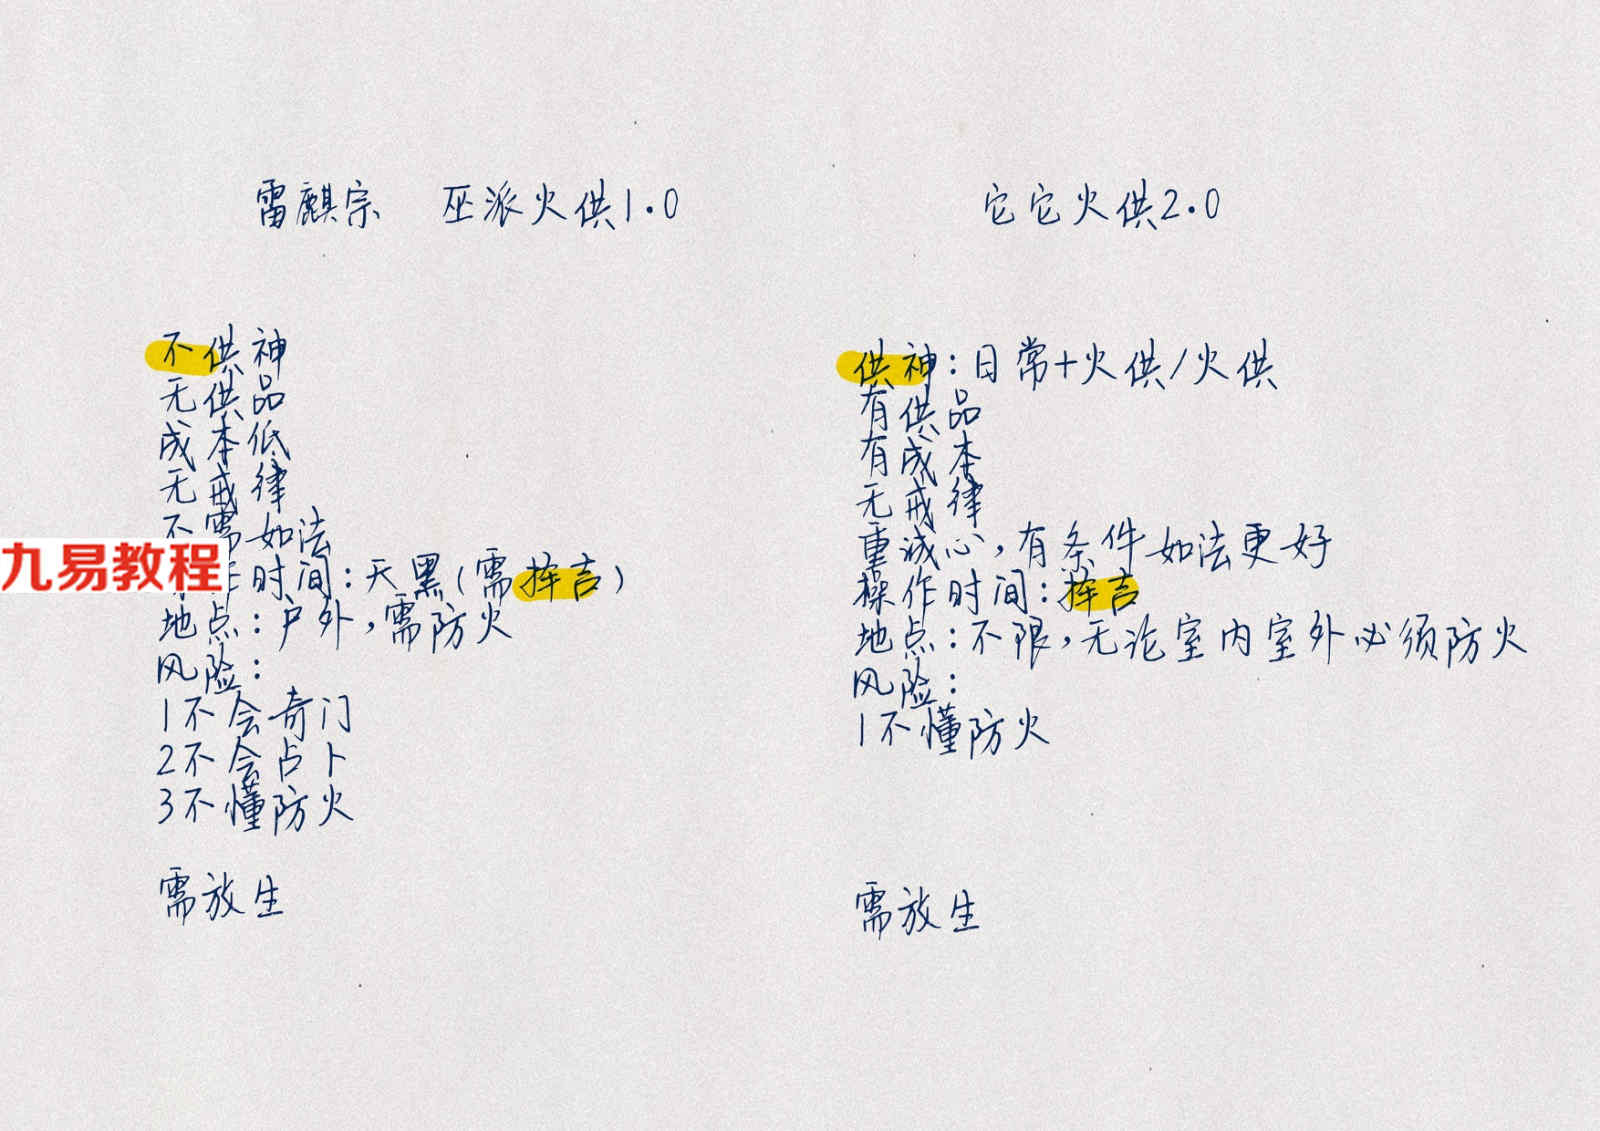 雷麒宗 巫派火供1.0
不供神
无供品
成本低
无戒律
不需如法
作时间:天黑(需择吉)
地点:户外,需防火
风险:
1不会奇门
2不会占卜
3不懂防火
需放生
它它火供2.0
供神:日常+火供/火供
有供品
有成本
无戒律
重诚心,有条件如法更好
操作时间:择吉
地点:不限,无论室内室外必须防火
风险:
1不懂防火
需放生
九易教程